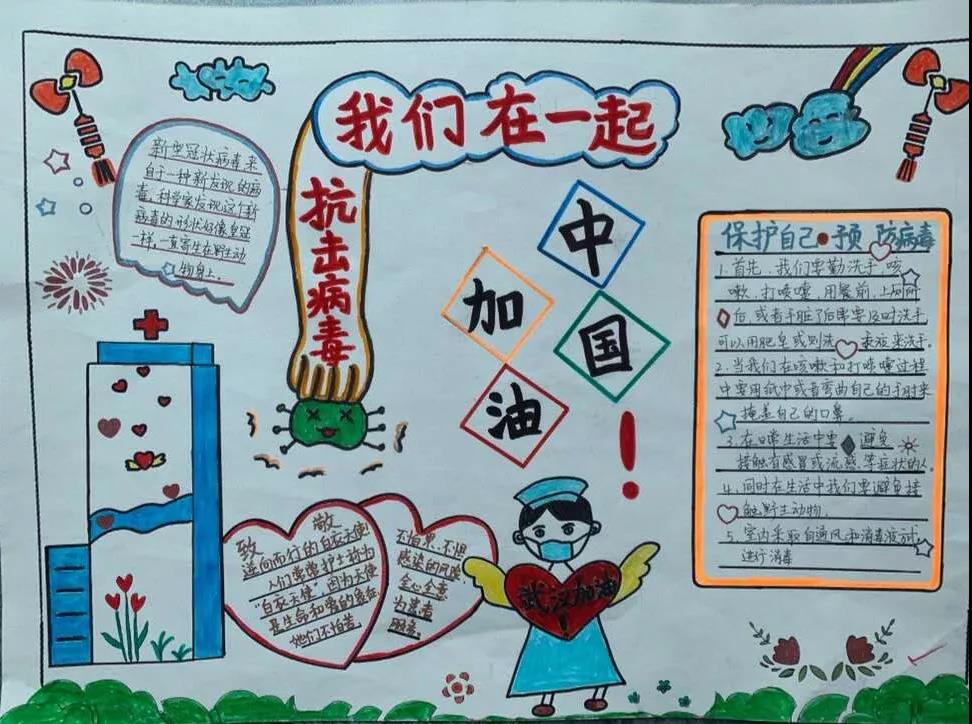 我们在一起
抗击病毒
新型冠状病毒来
自于一种新发现的病
毒,科学家发现这个新
病毒的形状好像皇冠
一样,一直寄生在野生动
物身上。
中国
加油
!
保护自己·预防病毒
1.首先,我们要勤洗手,咳
嗽,打喷嚏,用餐前,上厕所
后,或者手脏了后都要及时洗手
可以用肥皂或则洗 液来洗手。
2.当我们在咳嗽和打喷嚏过程
中要用纸巾或者弯曲自己的手肘来
掩盖自己的口鼻。
3.在日常生活中要避免
接触有感冒或流感等症状的人
4.同时在生活中我们要避免接
触野生动物。
5.室内采取自通风和消毒液
进行消毒
致敬
逆向而行的白衣天使!
人们常常护士称为
"白衣天使",因为天使
是生命和爱的象征
她们不怕苦
不怕累、不惧
感染的风险,
全心全意
为患者
服务。
武汉加油
!